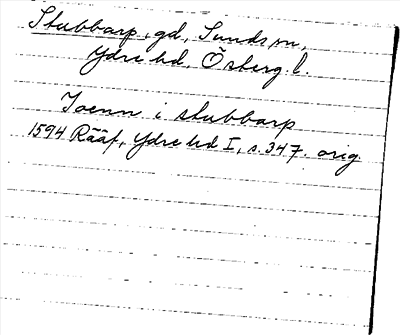 Stubbarp, gd, Sunds sn,
Ydre hd, Ösberg. l.
Joenn i stubbarp
1594 Rääf, Ydre hd I, s. 347. orig.